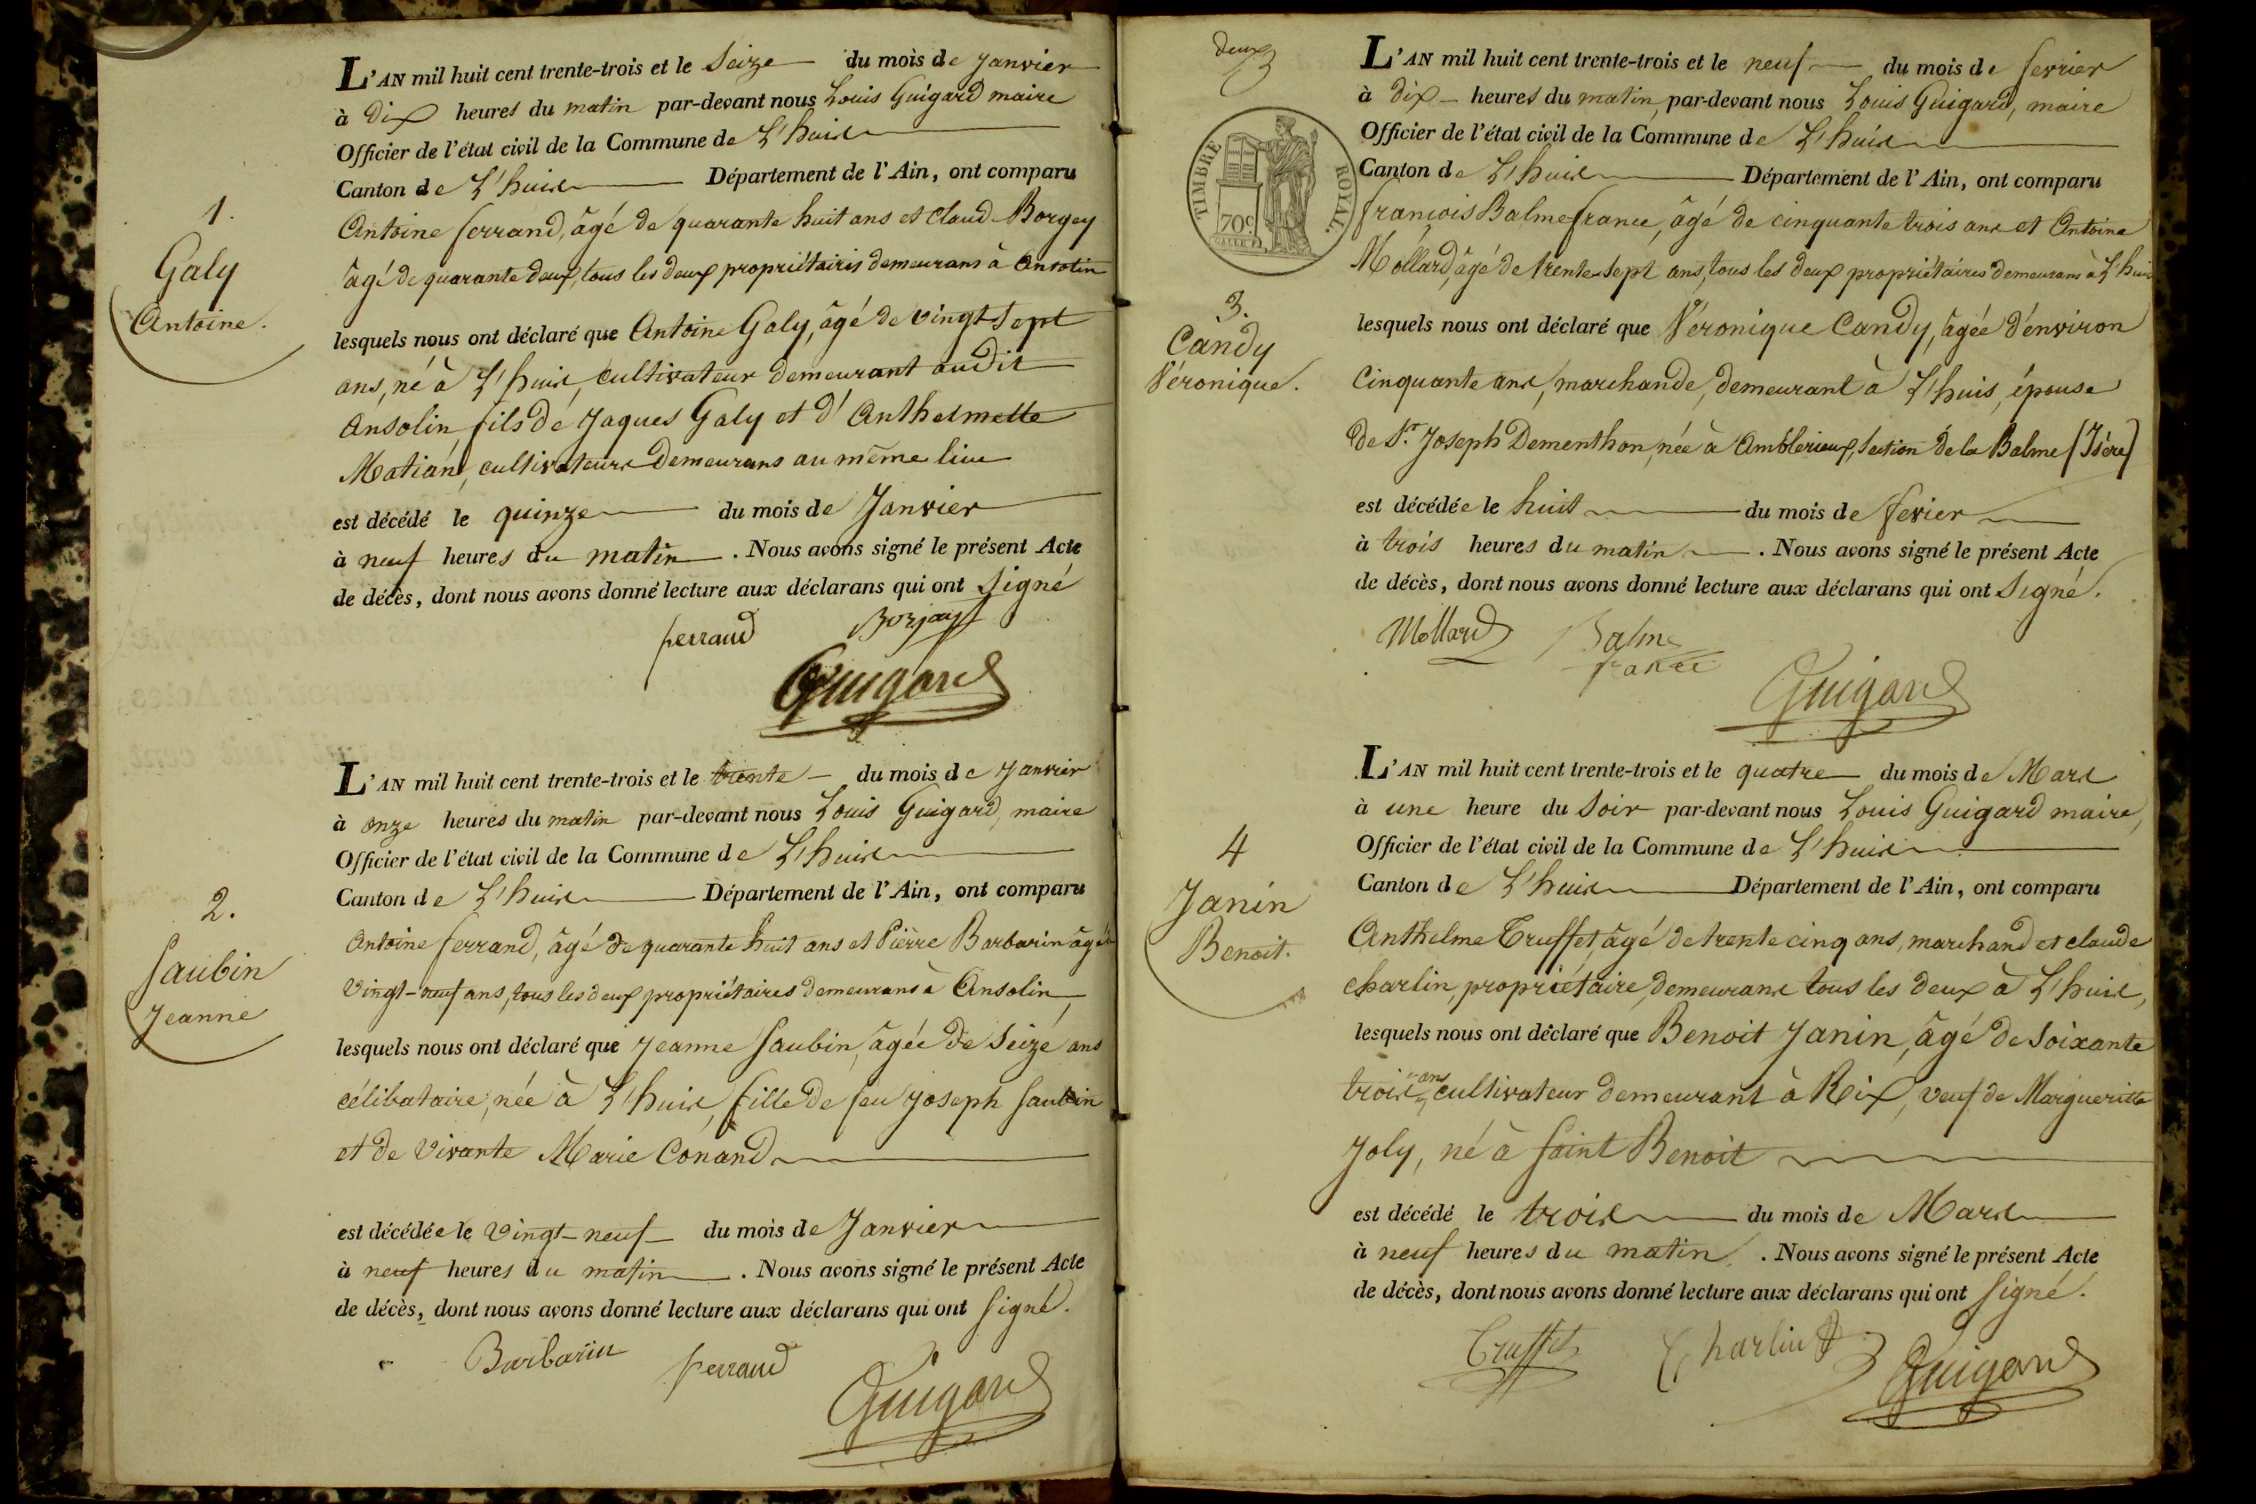 1.
Galy
Antoine.
L'AN mil huit cent trente-trois et le seize du mois de janvier
à dix heures du matin par-devant nous Louis Guigard maire
Officier de l'état civil de la Commune de L'huis
Canton de L'huis Département de l'Ain, ont comparu
Antoine ferrand, âgé de quarante huit ans et Claude Borgey
âgé de quarante deux, tous les deux propriétaires demeurans à Ansolin
lesquels nous ont déclaré que Antoine Galy, âgé de vingt sept
ans, né à L'huis, cultivateur demeurant audit
Ansolin, fils de Jaques Galy et d'Anthelmette
Matian, cultivateurs demeurans au même lieu
est décédé le quinze du mois de Janvier
à neuf heures du matin. Nous avons signé le présent Acte
de décès, dont nous avons donné lecture aux déclarans qui ont signé
ferrand Borjay
Guigard
2.
Saubin
Jeanne
L'AN mil huit cent trente-trois et le trente du mois de Janvier
à onze heures du matin par-devant nous Louis Guigard, maire
Officier de l'état civil de la Commune de L'huis
Canton de L'huis Département de l'Ain, ont comparu
Antoine ferrand, âgé de quarante huit ans et Pièrre Barbarin âgé de
vingt-neuf ans, tous les deux propriétaires demeurans à Ansolin
lesquels nous ont déclaré que Jeanne Saubin, âgée de seize ans
célibataire, née à L'huis, fille de feu Joseph Saubin
et de vivante Marie Conand
est décédée le vingt-neuf du mois de Janvier
à neuf heures du matin. Nous avons signé le présent Acte
de décès, dont nous avons donné lecture aux déclarans qui ont signé.
Barbarin ferrand
Guigard
deux
TIMBRE ROYAL.
70c
3.
Candy
Véronique.
L'AN mil huit cent trente-trois et le neuf du mois de fevrier
à dix heures du matin, par-devant nous Louis Guigard, maire
Officier de l'état civil de la Commune de L'huis
Canton de L'huis Département de l'Ain, ont comparu
françois Balme france, âgé de cinquante trois ans et Antoine
Mollard, âgé de trente sept ans, tous les deux propriétaires demeurans à L'huis
lesquels nous ont déclaré que Véronique Candy, âgée d'environ
cinquante ans, marchande, demeurant à L'huis, épouse
de Sr. Joseph Dementhon, née à Amblerieux, section de la Balme (Isère)
est décédée le huit du mois de fevier
à trois heures du matin. Nous avons signé le présent Acte
de décès, dont nous avons donné lecture aux déclarans qui ont signé.
Mollard Balme
france
Guigard
4
Janin
Benoit.
L'AN mil huit cent trente-trois et le quatre du mois de Mars
à une heure du soir par-devant nous Louis Guigard maire,
Officier de l'état civil de la Commune de L'huis
Canton de L'huis Département de l'Ain, ont comparu
Anthelme Truffet, âgé de trente cinq ans, marchand et claude
charlin, propriétaire, demeurans tous les deux à L'huis,
lesquels nous ont déclaré que Benoit Janin, âgé de soixante
trois ans cultivateur demeurant à Rix, veuf de Margueritte
Joly, né à Saint Benoit
est décédé le trois du mois de Mars
à neuf heures du matin. Nous avons signé le présent Acte
de décès, dont nous avons donné lecture aux déclarans qui ont signé.
Truffet Charlin
Guigard